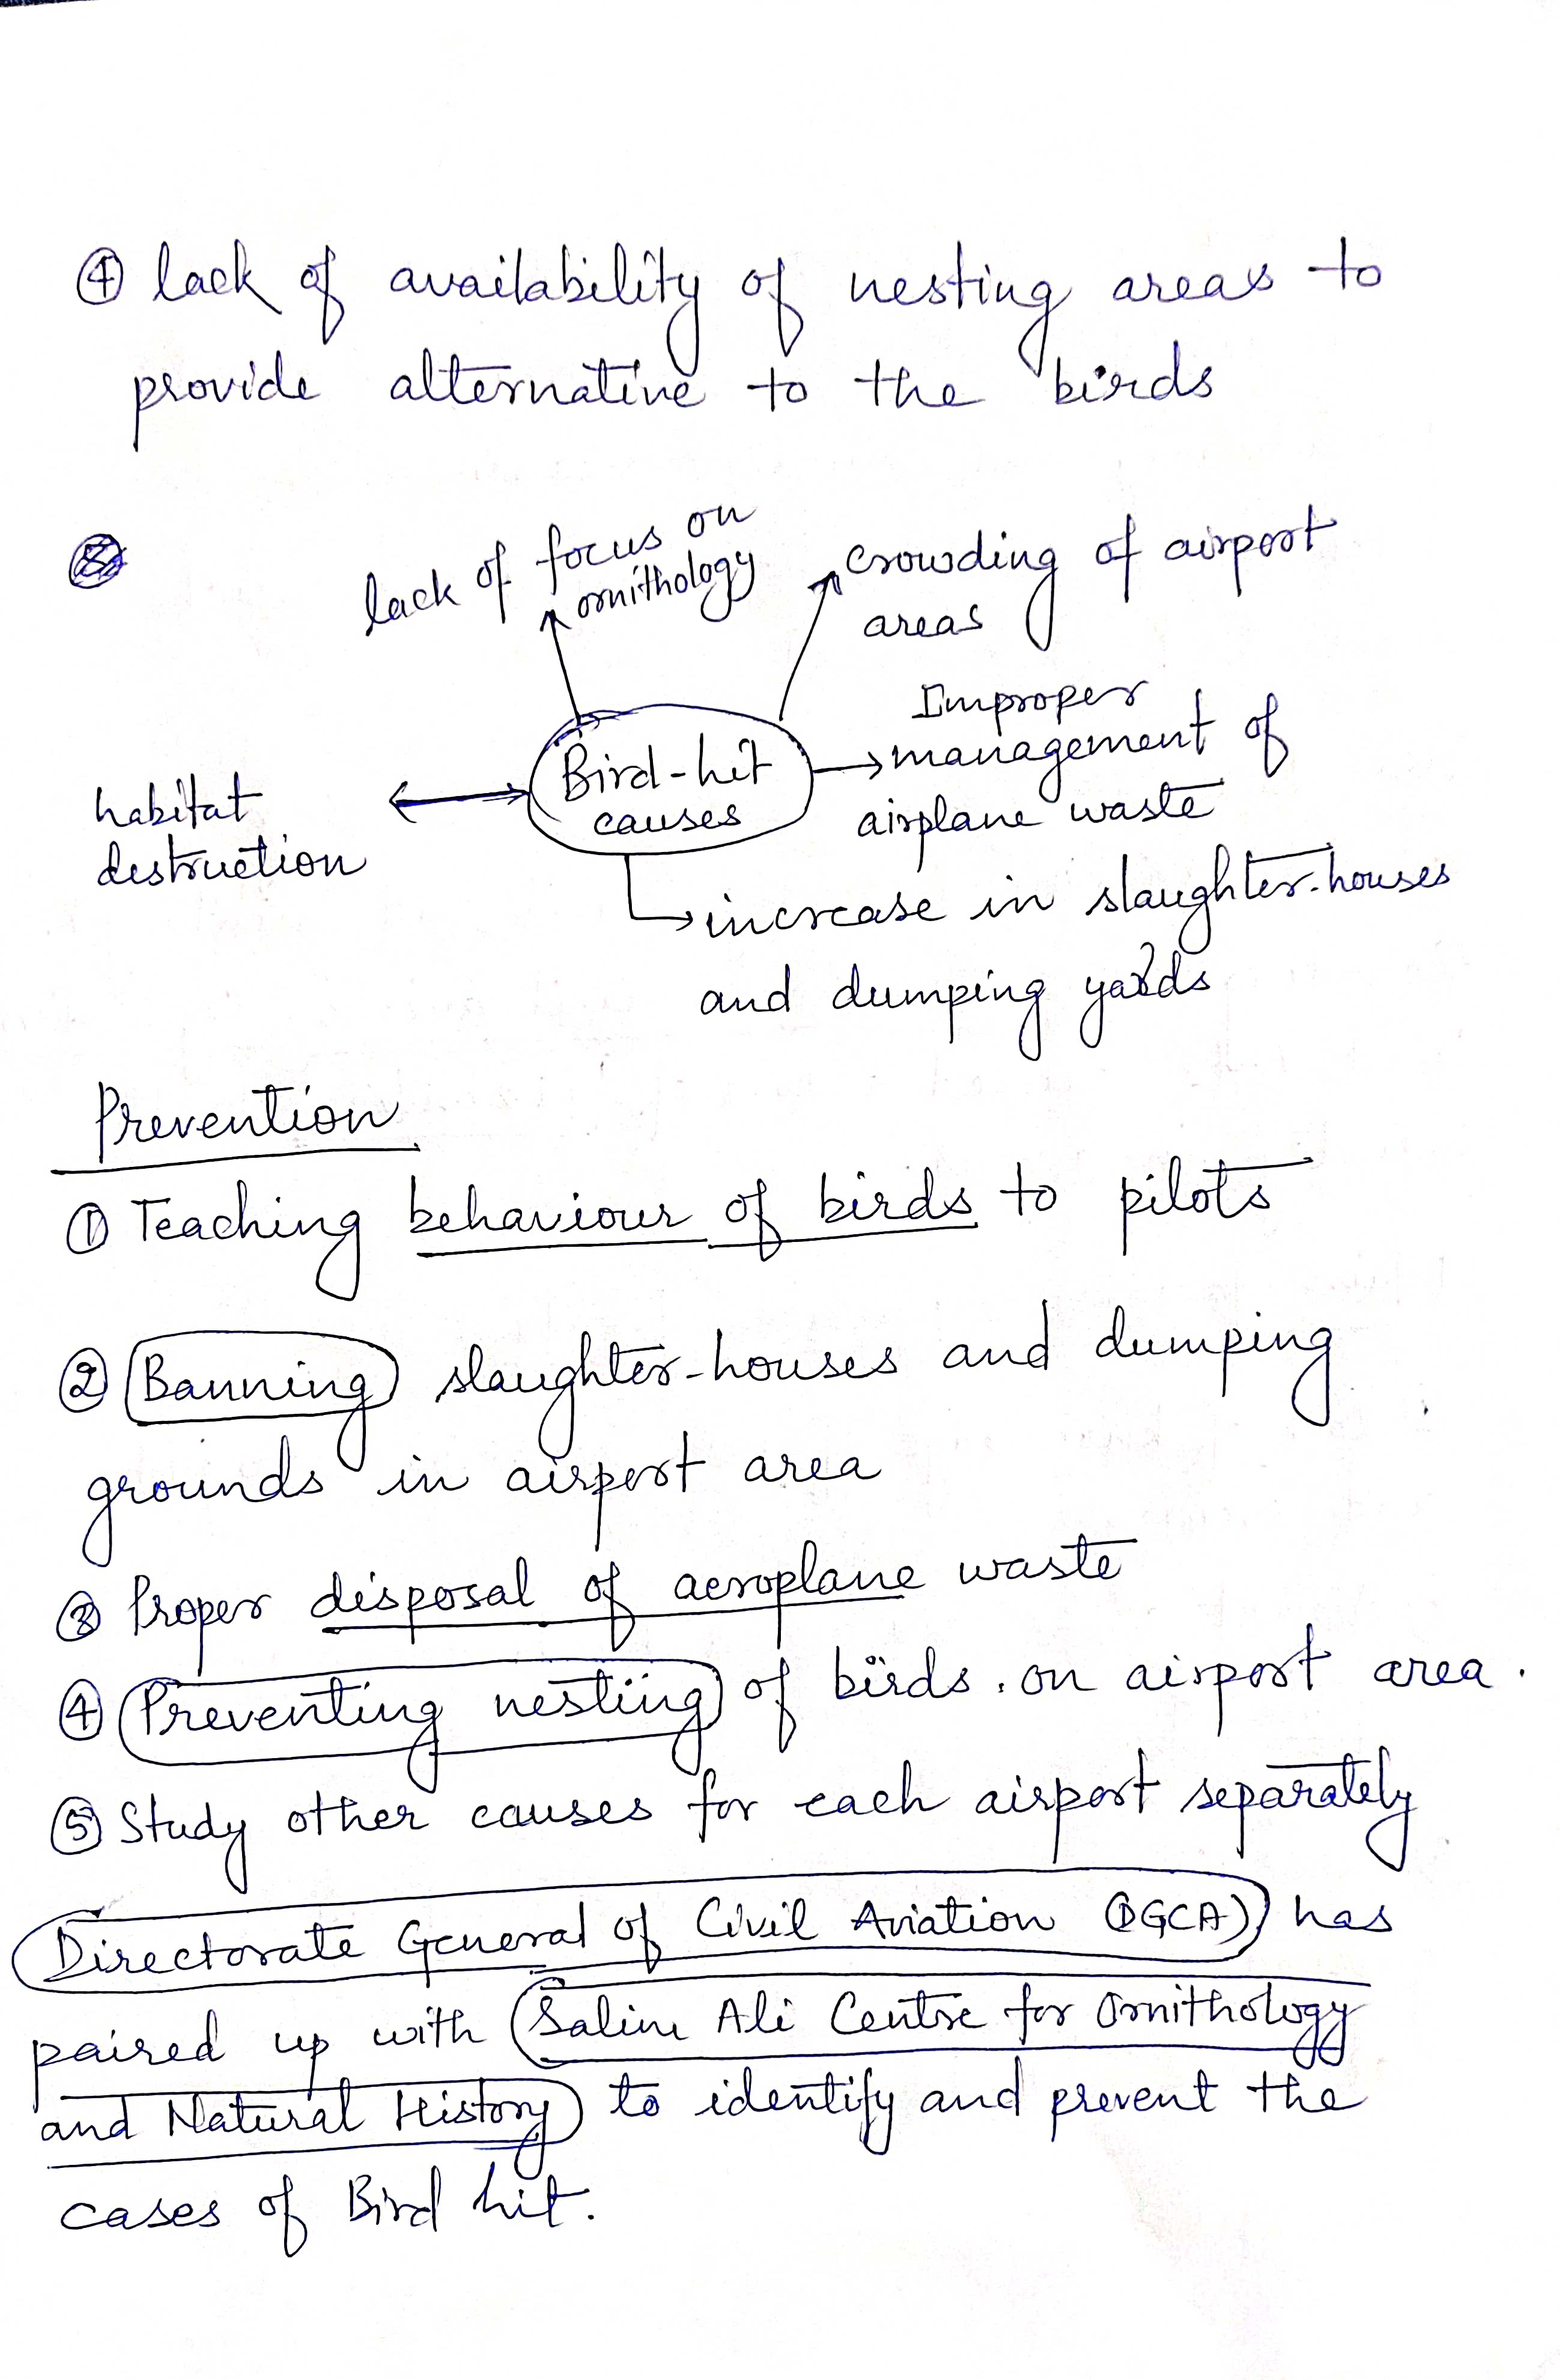 ④ lack of availability of nesting areas to
provide alternative to the birds
lack of focus on
ornithology
crowding of airport
areas
Improper
management of
airplane waste
Bird-hit
causes
habitat
destruction
increase in slaughter-houses
and dumping yards
Prevention
① Teaching behaviour of birds to pilots
② Banning slaughter-houses and dumping
grounds in airport area
③ Proper disposal of aeroplane waste
④ Preventing nesting of birds on airport area.
⑤ Study other causes for each airport separately
Directorate General of Civil Aviation (DGCA) has
paired up with Salim Ali Centre for Ornithology
and Natural History to identify and prevent the
cases of Bird hit.